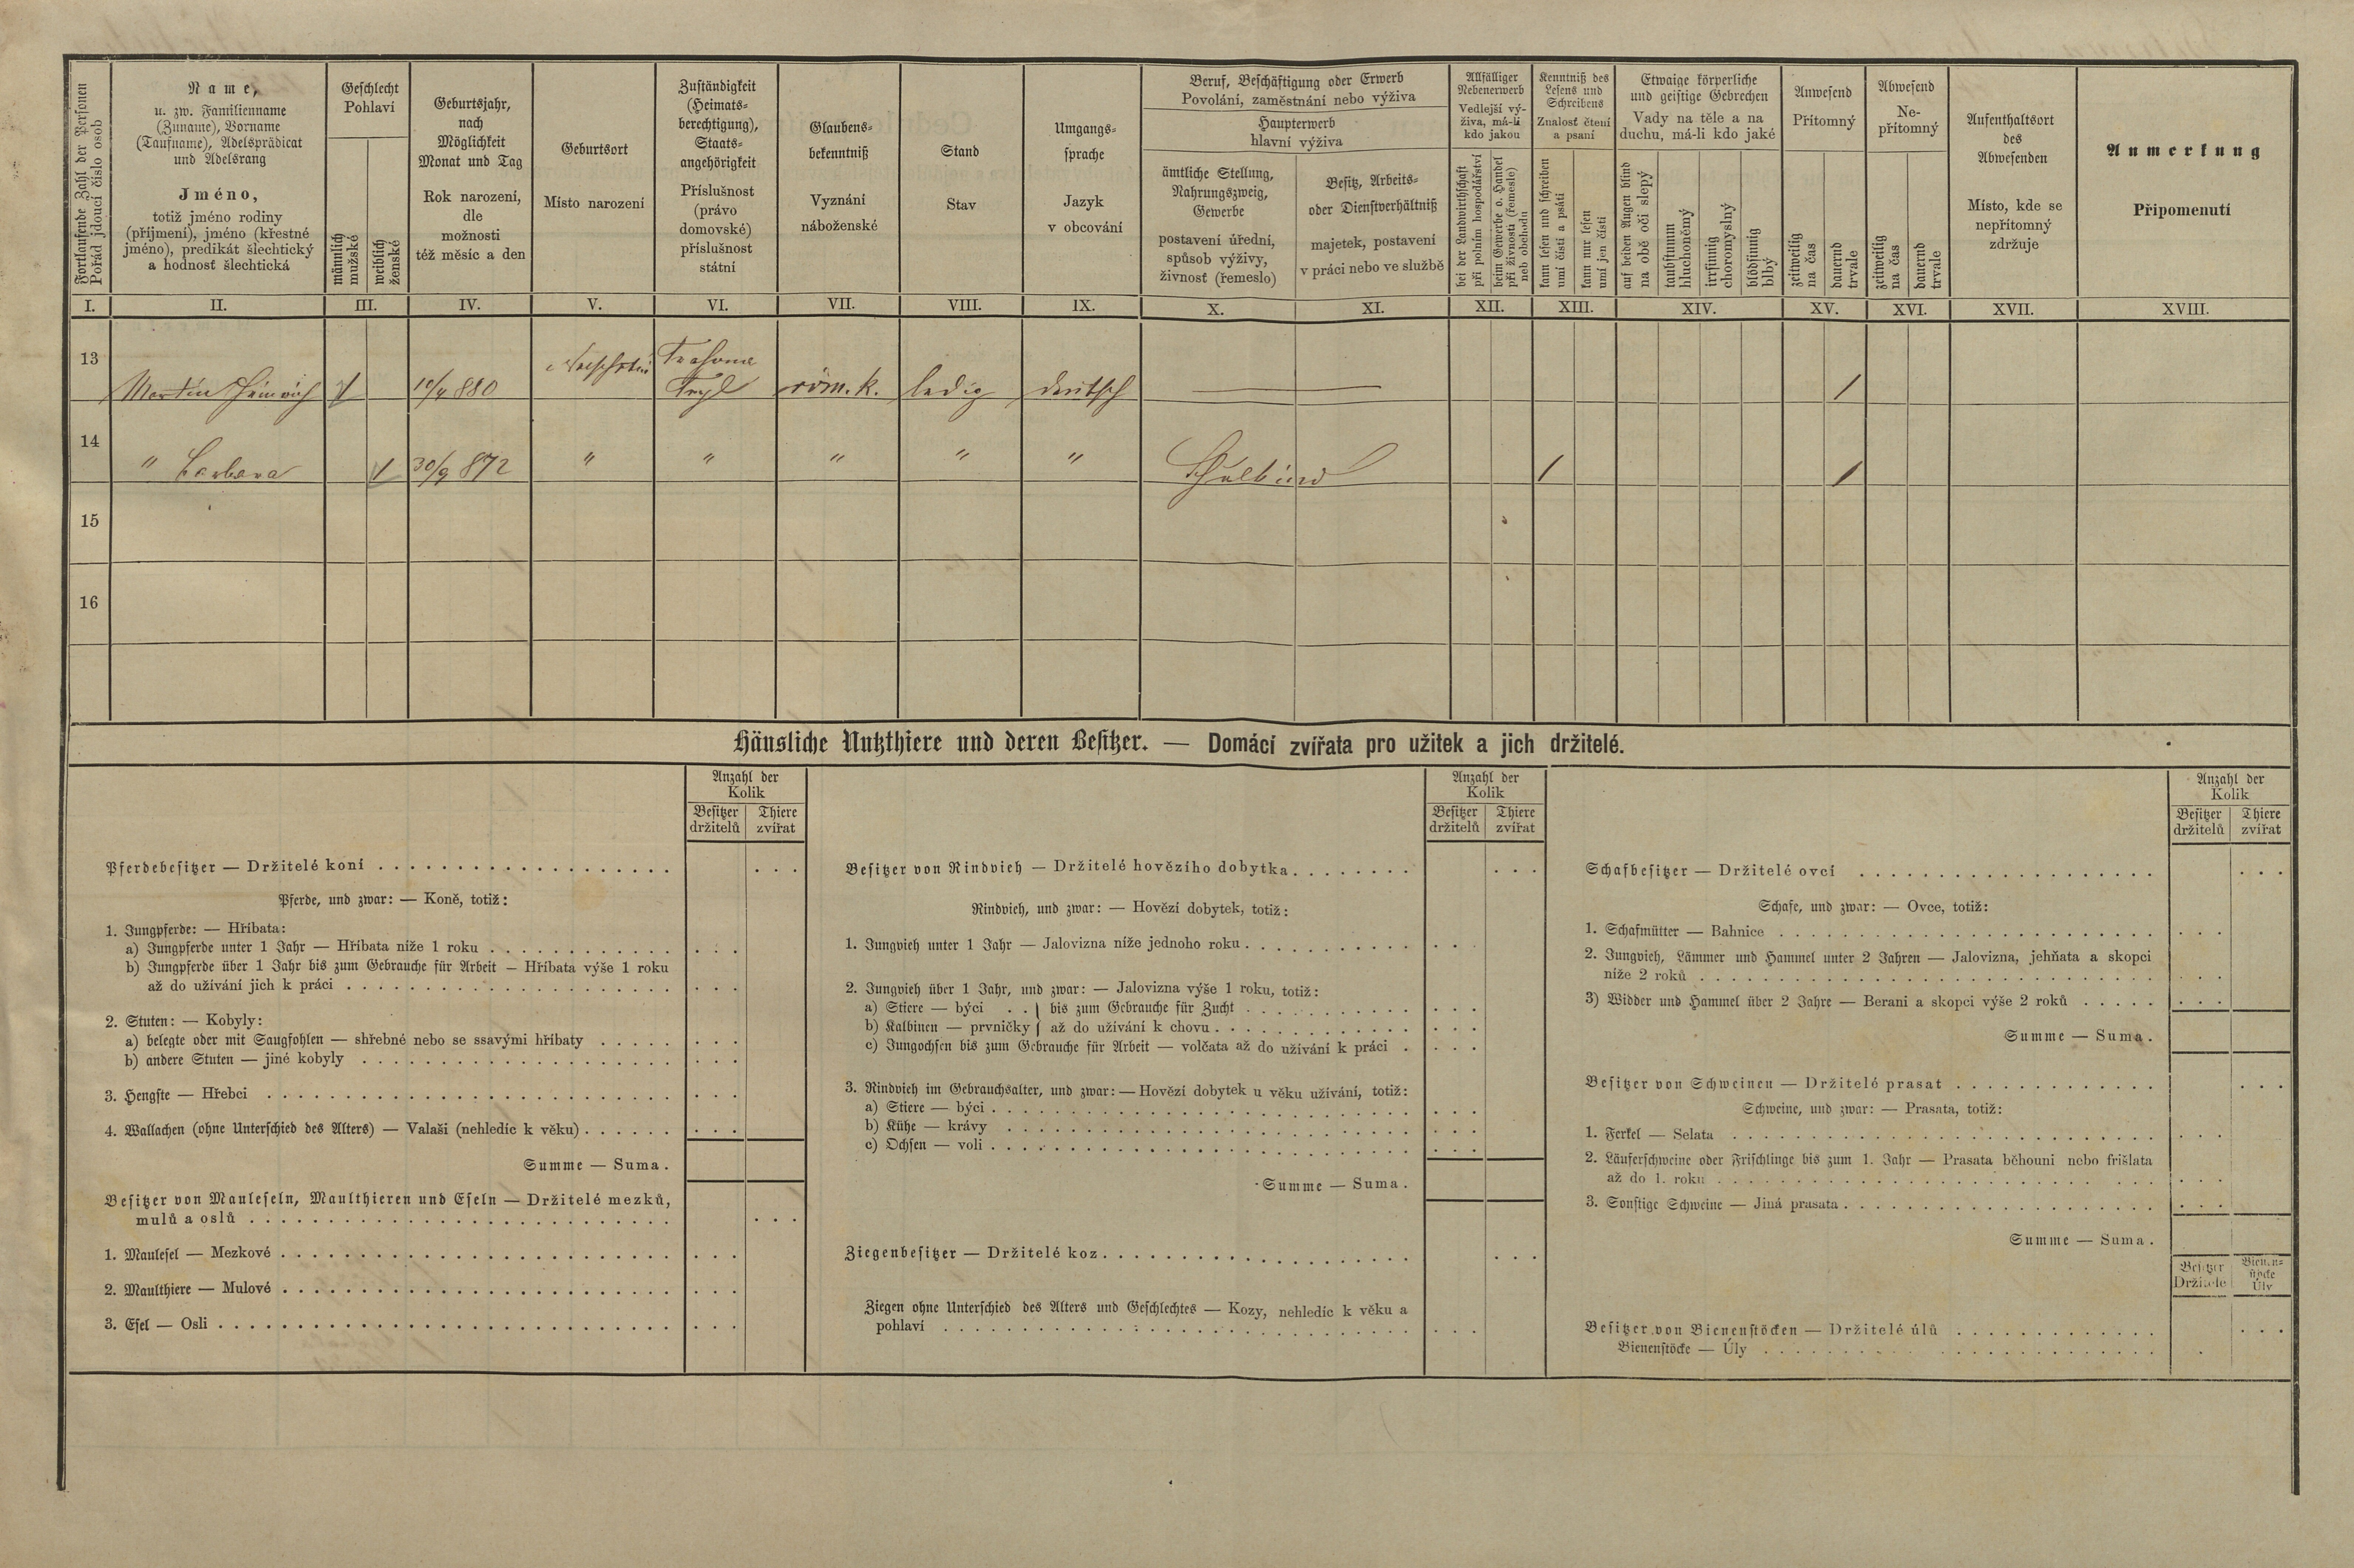 Fortlaufende Zahl der Personen
Pořád jdoucí číslo osob
Name,
u. zw. Familienname
(Zuname), Vorname
(Taufname), Adelsprädicat
und Adelsrang
Jméno,
totiž jméno rodiny
(příjmení), jméno (křestné
jméno), predikát šlechtický
a hodnosť šlechtická
Geschlecht
Pohlaví
männlich
mužské
weiblich
ženské
Geburtsjahr,
nach
Möglichkeit
Monat und Tag
Rok narození,
dle
možnosti
též měsíc a den
Geburtsort
Místo narození
Zuständigkeit
(Heimats-
berechtigung),
Staats-
angehörigkeit
Příslušnost
(právo
domovské)
příslušnost
státní
Glaubens-
bekenntniß
Vyznání
náboženské
Stand
Stav
Umgangs-
sprache
Jazyk
v obcování
Beruf, Beschäftigung oder Erwerb
Povolání, zaměstnání nebo výživa
Haupterwerb
hlavní výživa
ämtliche Stellung,
Nahrungszweig,
Gewerbe
postavení úřední,
spůsob výživy,
živnosť (řemeslo)
Besitz, Arbeits-
oder Dienstverhältniß
majetek, postavení
v práci nebo ve službě
Allfälliger
Nebenerwerb
Vedlejší vý-
živa, má-li
kdo jakou
bei der Landwirthschaft
při polním hospodářství
beim Gewerbe o. Handel
při živnosti (řemeslo)
neb obchodu
Kenntniß des
Lesens und
Schreibens
Znalosť čtení
a psaní
kann lesen und schreiben
umí čísti a psáti
kann nur lesen
umí jen čísti
Etwaige körperliche
und geistige Gebrechen
Vady na těle a na
duchu, má-li kdo jaké
auf beiden Augen blind
na obě oči slepý
taubstumm
hluchoněmý
irrsinnig
choromyslný
blödsinnig
blbý
Anwesend
Přítomný
zeitweilig
na čas
dauernd
trvale
Abwesend
Ne-
přítomný
zeitweilig
na čas
dauernd
trvale
Aufenthaltsort
des
Abwesenden
Místo, kde se
nepřítomný
zdržuje
Anmerkung
Připomenutí
I. II. III. IV. V. VI. VII. VIII. IX. X. XI. XII. XIII. XIV. XV. XVI. XVII. XVIII.
13 Martin Heinrich 1 10/4 880 röm. k. ledig deutsch 1
14 " Barbara 1 30/9 872 " " " " " Schulkind 1 1
15
16
Häusliche Nutzthiere und deren Besitzer. — Domácí zvířata pro užitek a jich držitelé.
Anzahl der
Kolik
Besitzer Thiere
držitelů zvířat
Pferdebesitzer — Držitelé koní
Pferde, und zwar: — Koně, totiž:
1. Jungpferde: — Hříbata:
a) Jungpferde unter 1 Jahr — Hříbata níže 1 roku
b) Jungpferde über 1 Jahr bis zum Gebrauche für Arbeit — Hříbata výše 1 roku
až do užívání jich k práci
2. Stuten: — Kobyly:
a) belegte oder mit Saugfohlen — shřebné nebo se ssavými hříbaty
b) andere Stuten — jiné kobyly
3. Hengste — Hřebci
4. Wallachen (ohne Unterschied des Alters) — Valaši (nehledíc k věku)
Summe — Suma.
Besitzer von Mauleseln, Maulthieren und Eseln — Držitelé mezků,
mulů a oslů
1. Maulesel — Mezkové
2. Maulthiere — Mulové
3. Esel — Osli
Anzahl der
Kolik
Besitzer Thiere
držitelů zvířat
Besitzer von Rindvieh — Držitelé hovězího dobytka
Rindvieh, und zwar: — Hovězí dobytek, totiž:
1. Jungvieh unter 1 Jahr — Jalovizna níže jednoho roku
2. Jungvieh über 1 Jahr, und zwar: — Jalovizna výše 1 roku, totiž:
a) Stiere — býci . . } bis zum Gebrauche für Zucht
b) Kalbinen — prvničky } až do užívání k chovu
c) Jungochsen bis zum Gebrauche für Arbeit — volčata až do užívání k práci
3. Rindvieh im Gebrauchsalter, und zwar: — Hovězí dobytek u věku užívání, totiž:
a) Stiere — býci
b) Kühe — krávy
c) Ochsen — voli
Summe — Suma.
Ziegenbesitzer — Držitelé koz
Ziegen ohne Unterschied des Alters und Geschlechtes — Kozy, nehledíc k věku a
pohlaví
Anzahl der
Kolik
Besitzer Thiere
držitelů zvířat
Schafbesitzer — Držitelé ovcí
Schafe, und zwar: — Ovce, totiž:
1. Schafmütter — Bahnice
2. Jungvieh, Lämmer und Hammel unter 2 Jahren — Jalovizna, jehňata a skopci
níže 2 roků
3) Widder und Hammel über 2 Jahre — Berani a skopci výše 2 roků
Summe — Suma.
Besitzer von Schweinen — Držitelé prasat
Schweine, und zwar: — Prasata, totiž:
1. Ferkel — Selata
2. Läuferschweine oder Frischlinge bis zum 1. Jahr — Prasata běhouni nebo frišlata
až do 1. roku
3. Sonstige Schweine — Jiná prasata
Summe — Suma.
Besitzer Bienen-
stöcke
Držitelé Úly
Besitzer von Bienenstöcken — Držitelé úlů
Bienenstöcke — Úly